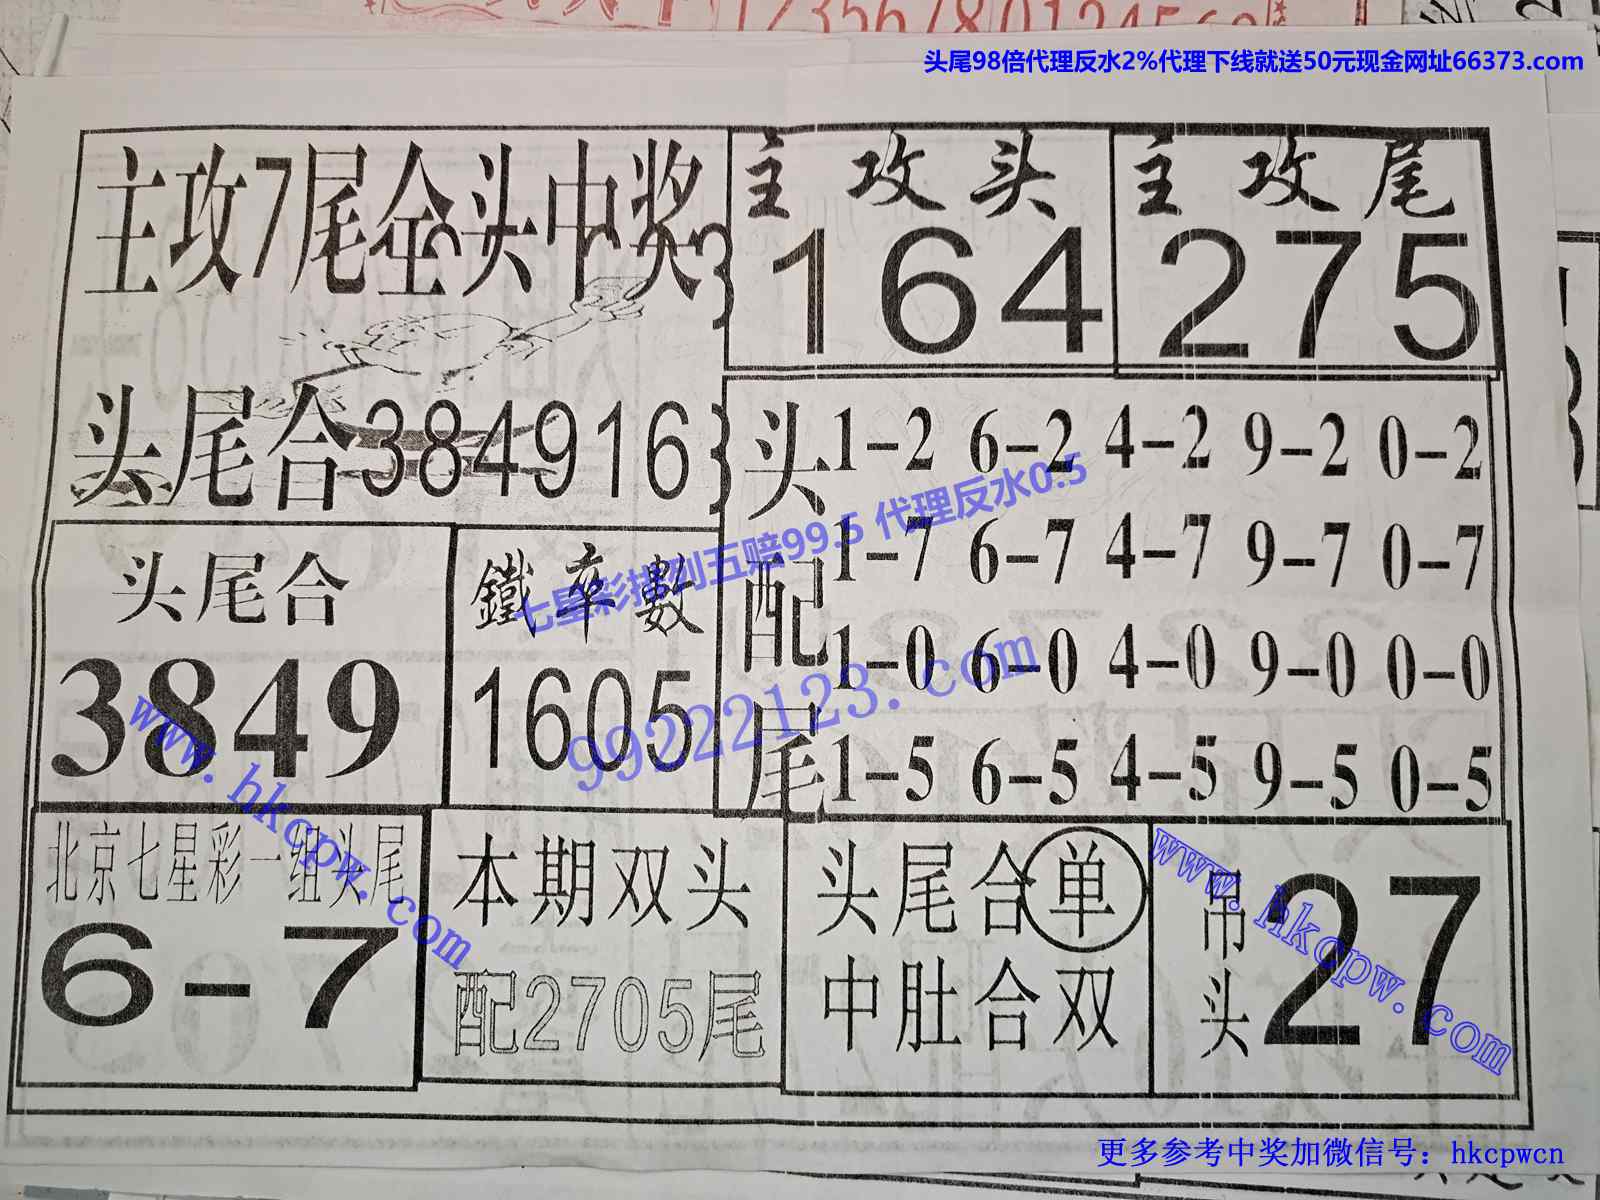 12356780124568
头尾98倍代理反水2%代理下线就送50元现金网址66373.com
主攻7尾全头中奖
主攻头
164
主攻尾
275
头尾合384916
头配尾
1-2 6-2 4-2 9-2 0-2
1-7 6-7 4-7 9-7 0-7
1-0 6-0 4-0 9-0 0-0
1-5 6-5 4-5 9-5 0-5
七星彩排列五赔99.5 代理反水0.5
99222123.com
头尾合
3849
鐵卒數
1605
www.hkcpw.com
北京七星彩一组头尾
6-7
本期双头
配2705尾
头尾合单
中肚合双
吊头
27
www.hkcpw.com
更多参考中奖加微信号：hkcpwcn